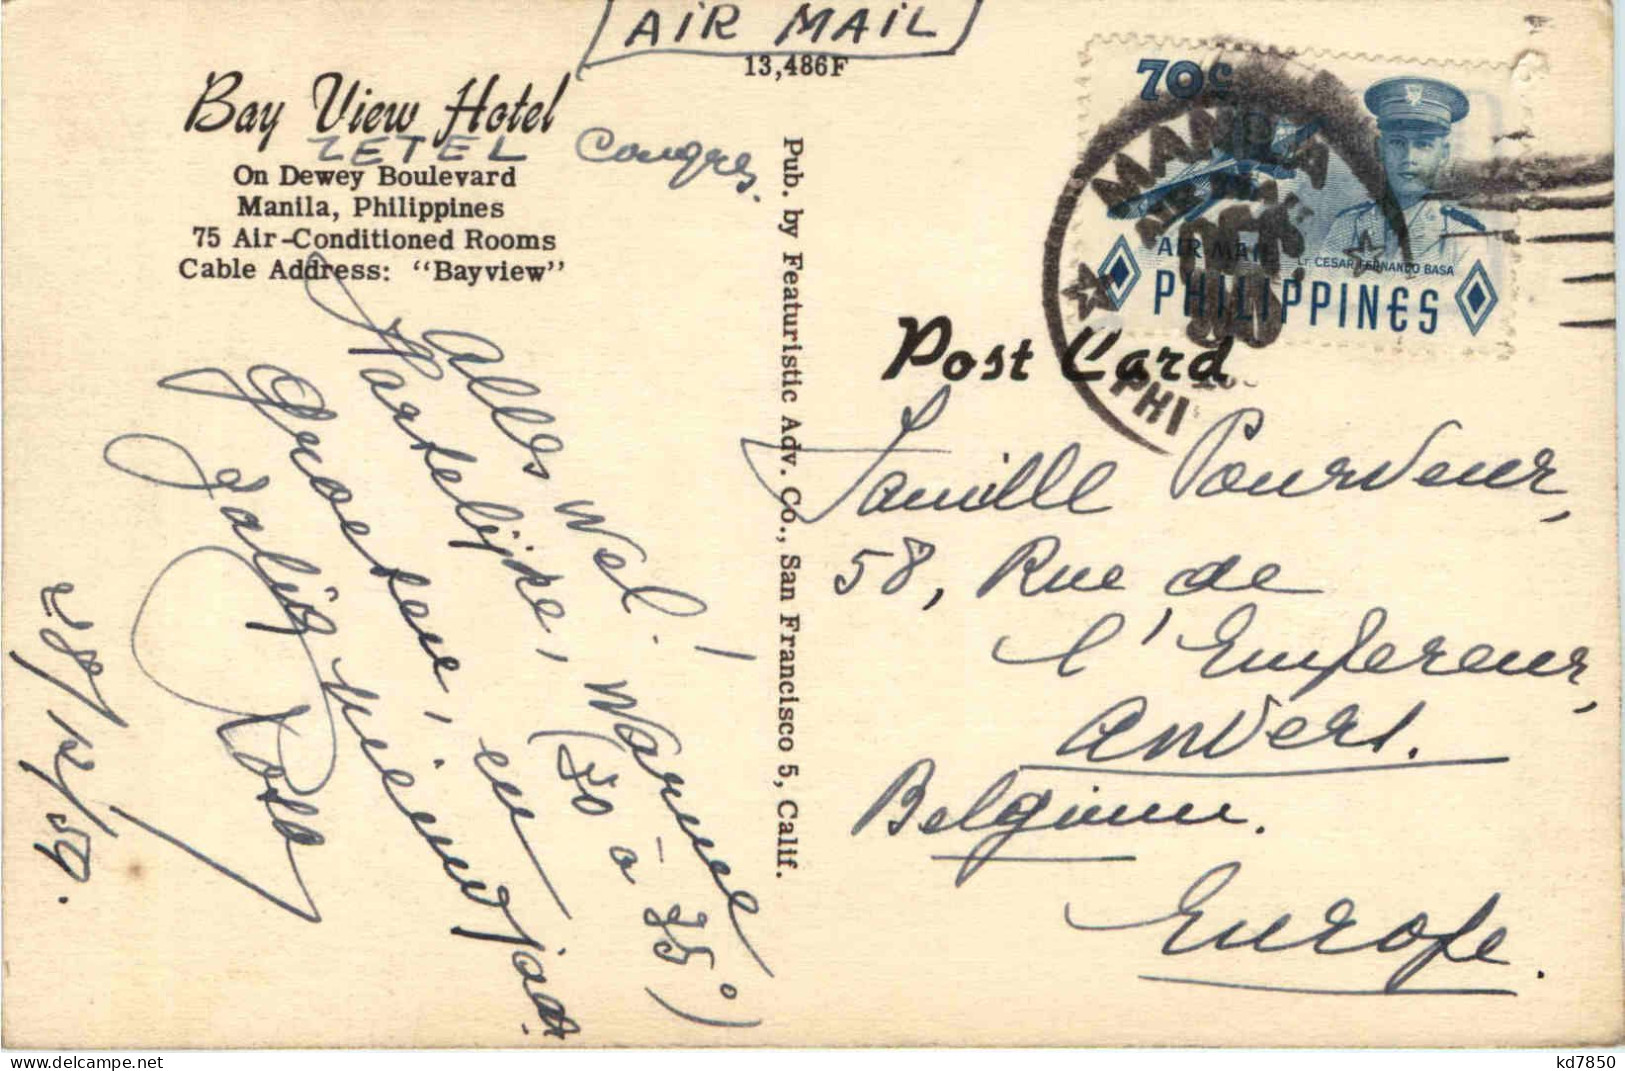 AIR MAIL
13,486F
Bay View Hotel
ZETEL Congres.
On Dewey Boulevard
Manila, Philippines
75 Air-Conditioned Rooms
Cable Address: "Bayview"
Alles wel!
Hartelijke, Warme
(30 à 35°)
Groeten, en
Zalig Nieuwjaar.
28/12/59.
Pub. by Featuristic Adv. Co., San Francisco 5, Calif.
70c
AIR MAIL
LT. CESAR FERNANDO BASA
PHILIPPINES
MANILA
PHI
Post Card
Famille Pourveur,
58, Rue de
l'Empereur,
Anvers.
Belgium.
Europe.
kd7850